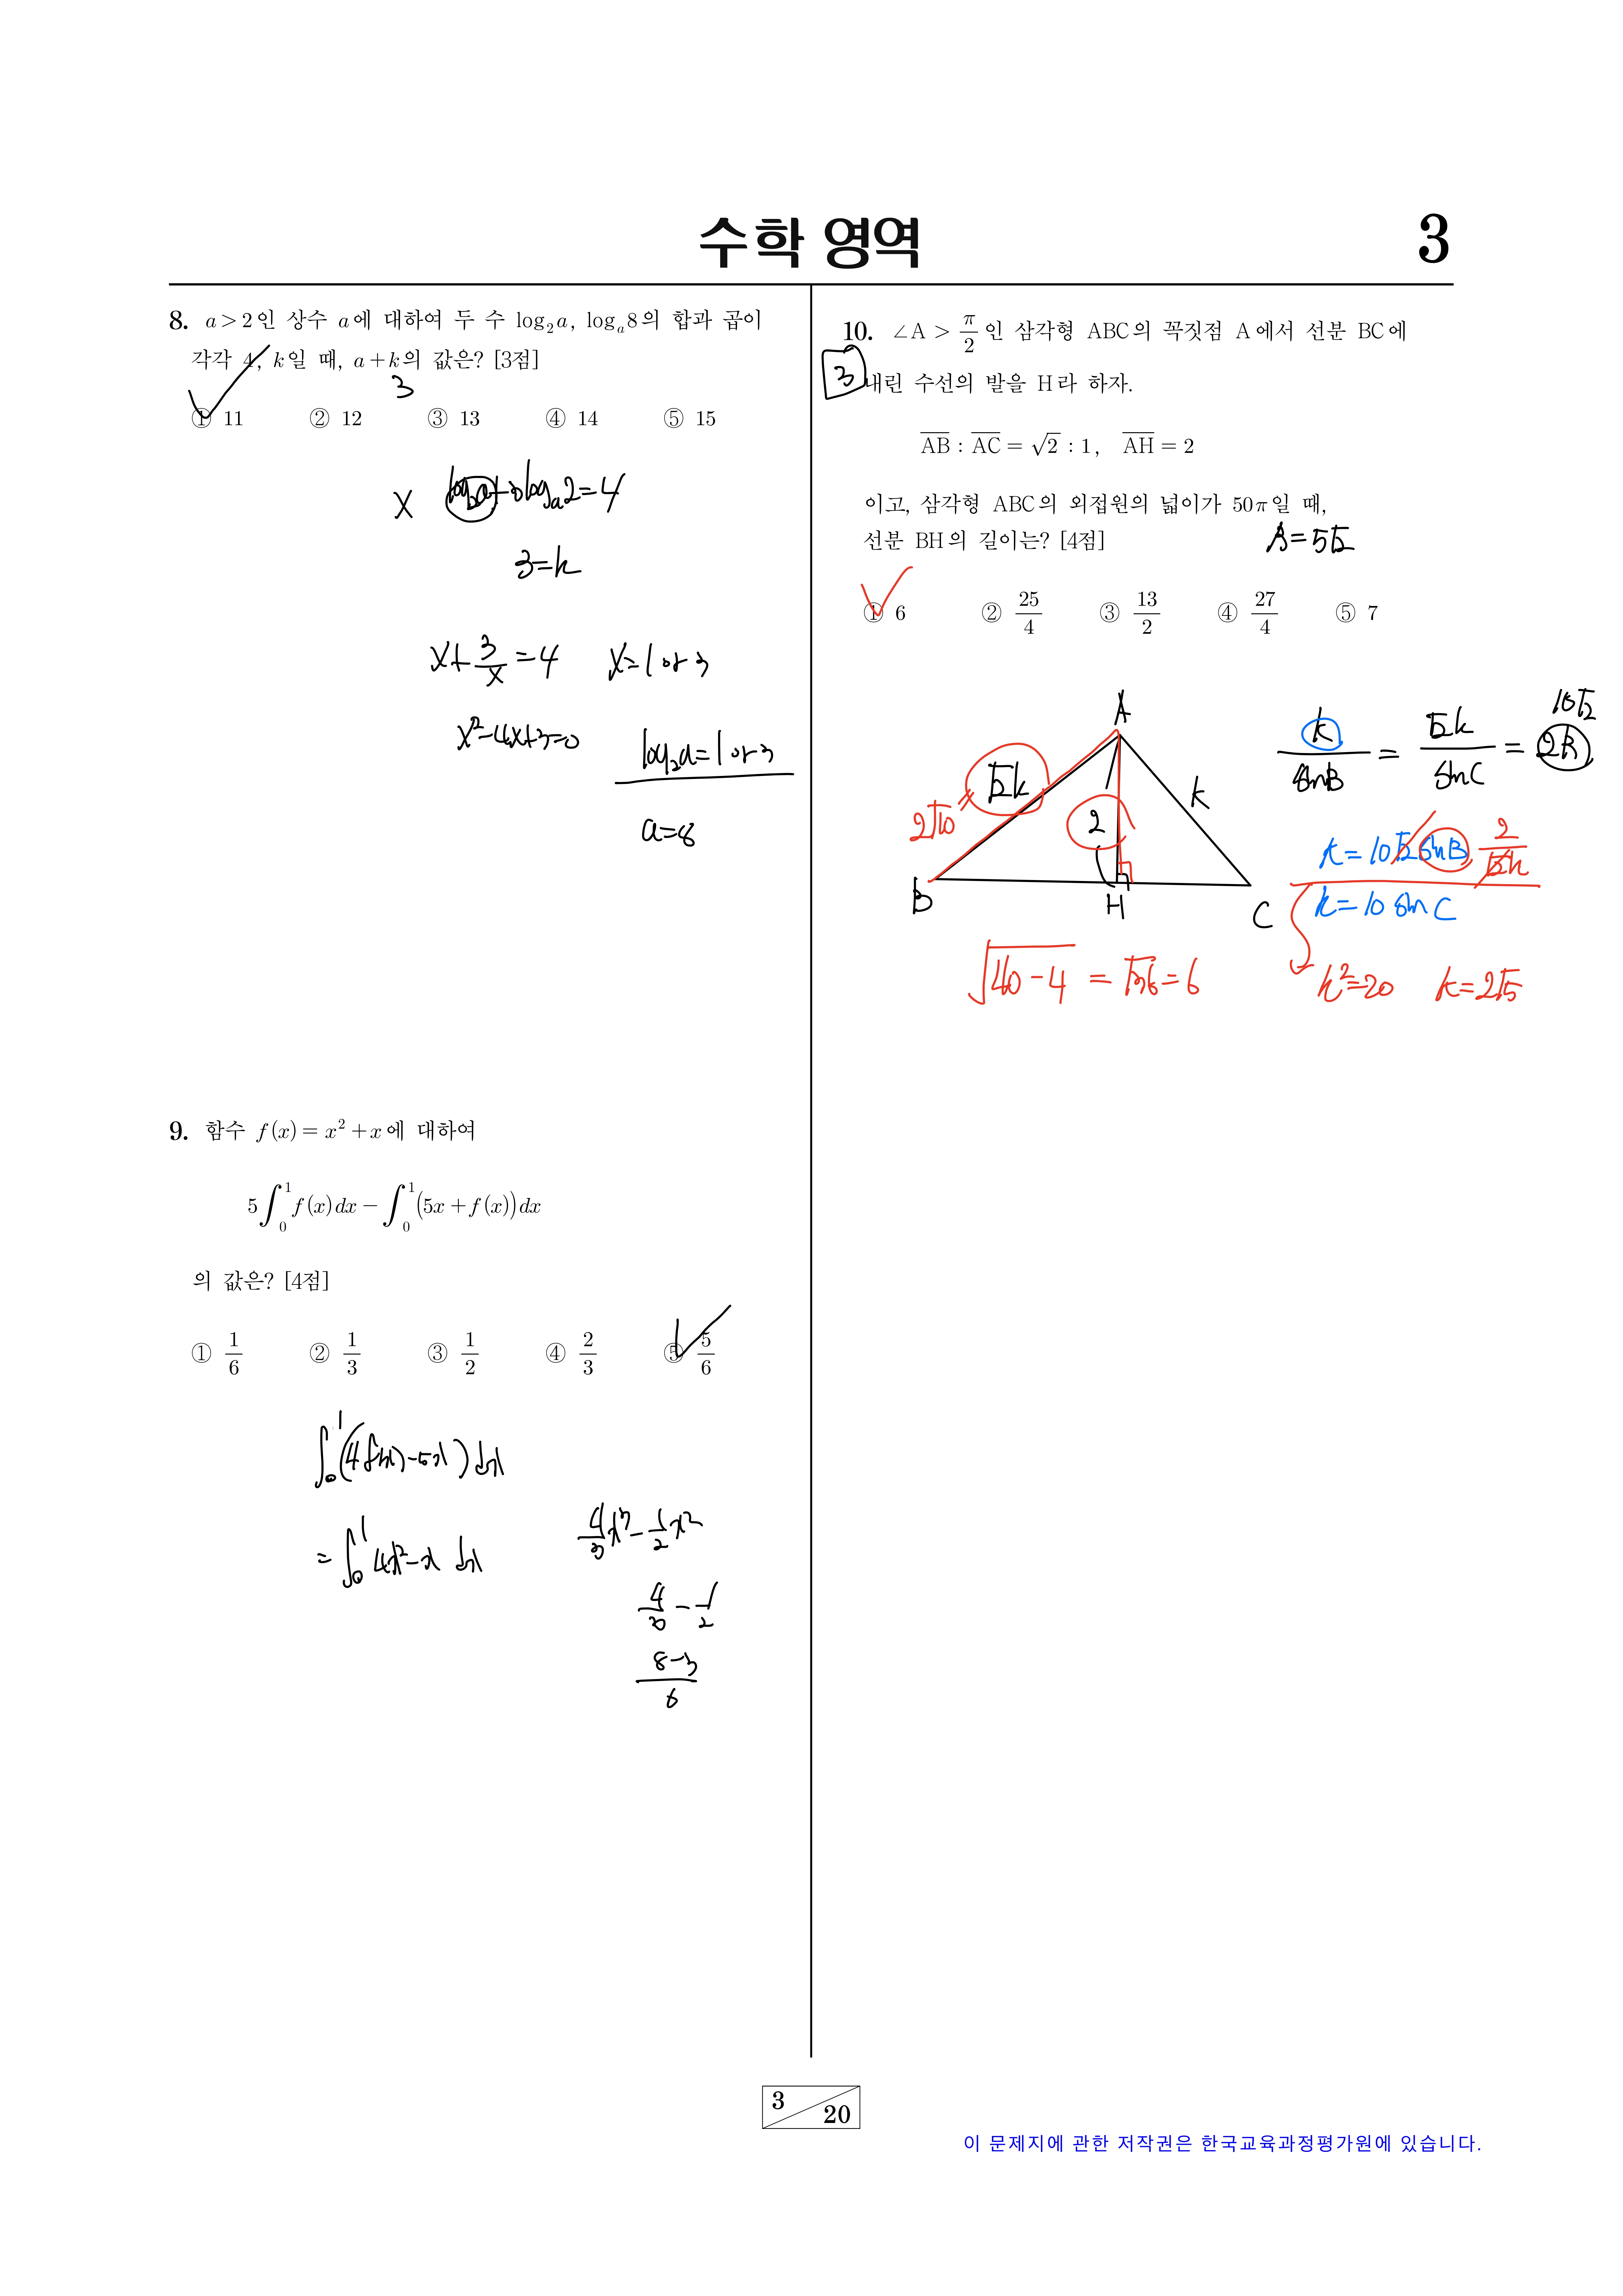 수학 영역
3
8. a > 2인 상수 a에 대하여 두 수 log₂a, logₐ8의 합과 곱이
각각 4, k일 때, a+k의 값은? [3점]
3
① 11 ② 12 ③ 13 ④ 14 ⑤ 15
X log₂a+3logₐ2=4
3=k
x+3/x=4 x=1 or 3
x²-4x+3=0
log₂a=1 or 3
a=8
9. 함수 f(x)=x²+x에 대하여
5∫₀¹f(x)dx-∫₀¹(5x+f(x))dx
의 값은? [4점]
① 1/6 ② 1/3 ③ 1/2 ④ 2/3 ⑤ 5/6
∫₀¹(4f(x)-5x)dx
=∫₀¹4x²-x dx
4/3x³-1/2x²
4/3-1/2
8-3/6
10. ∠A > π/2인 삼각형 ABC의 꼭짓점 A에서 선분 BC에
3
내린 수선의 발을 H라 하자.
AB : AC = √2 : 1, AH = 2
이고, 삼각형 ABC의 외접원의 넓이가 50π일 때,
선분 BH의 길이는? [4점]
R=5√2
① 6 ② 25/4 ③ 13/2 ④ 27/4 ⑤ 7
A
√2k
2√10 =
2
k
B
H
C
10√2
k/sinB = √2k/sinC = 2R
k=10√2 sinB 2/√2k
k=10 sinC
k²=20 k=2√5
√40-4 = √36=6
3
20
이 문제지에 관한 저작권은 한국교육과정평가원에 있습니다.